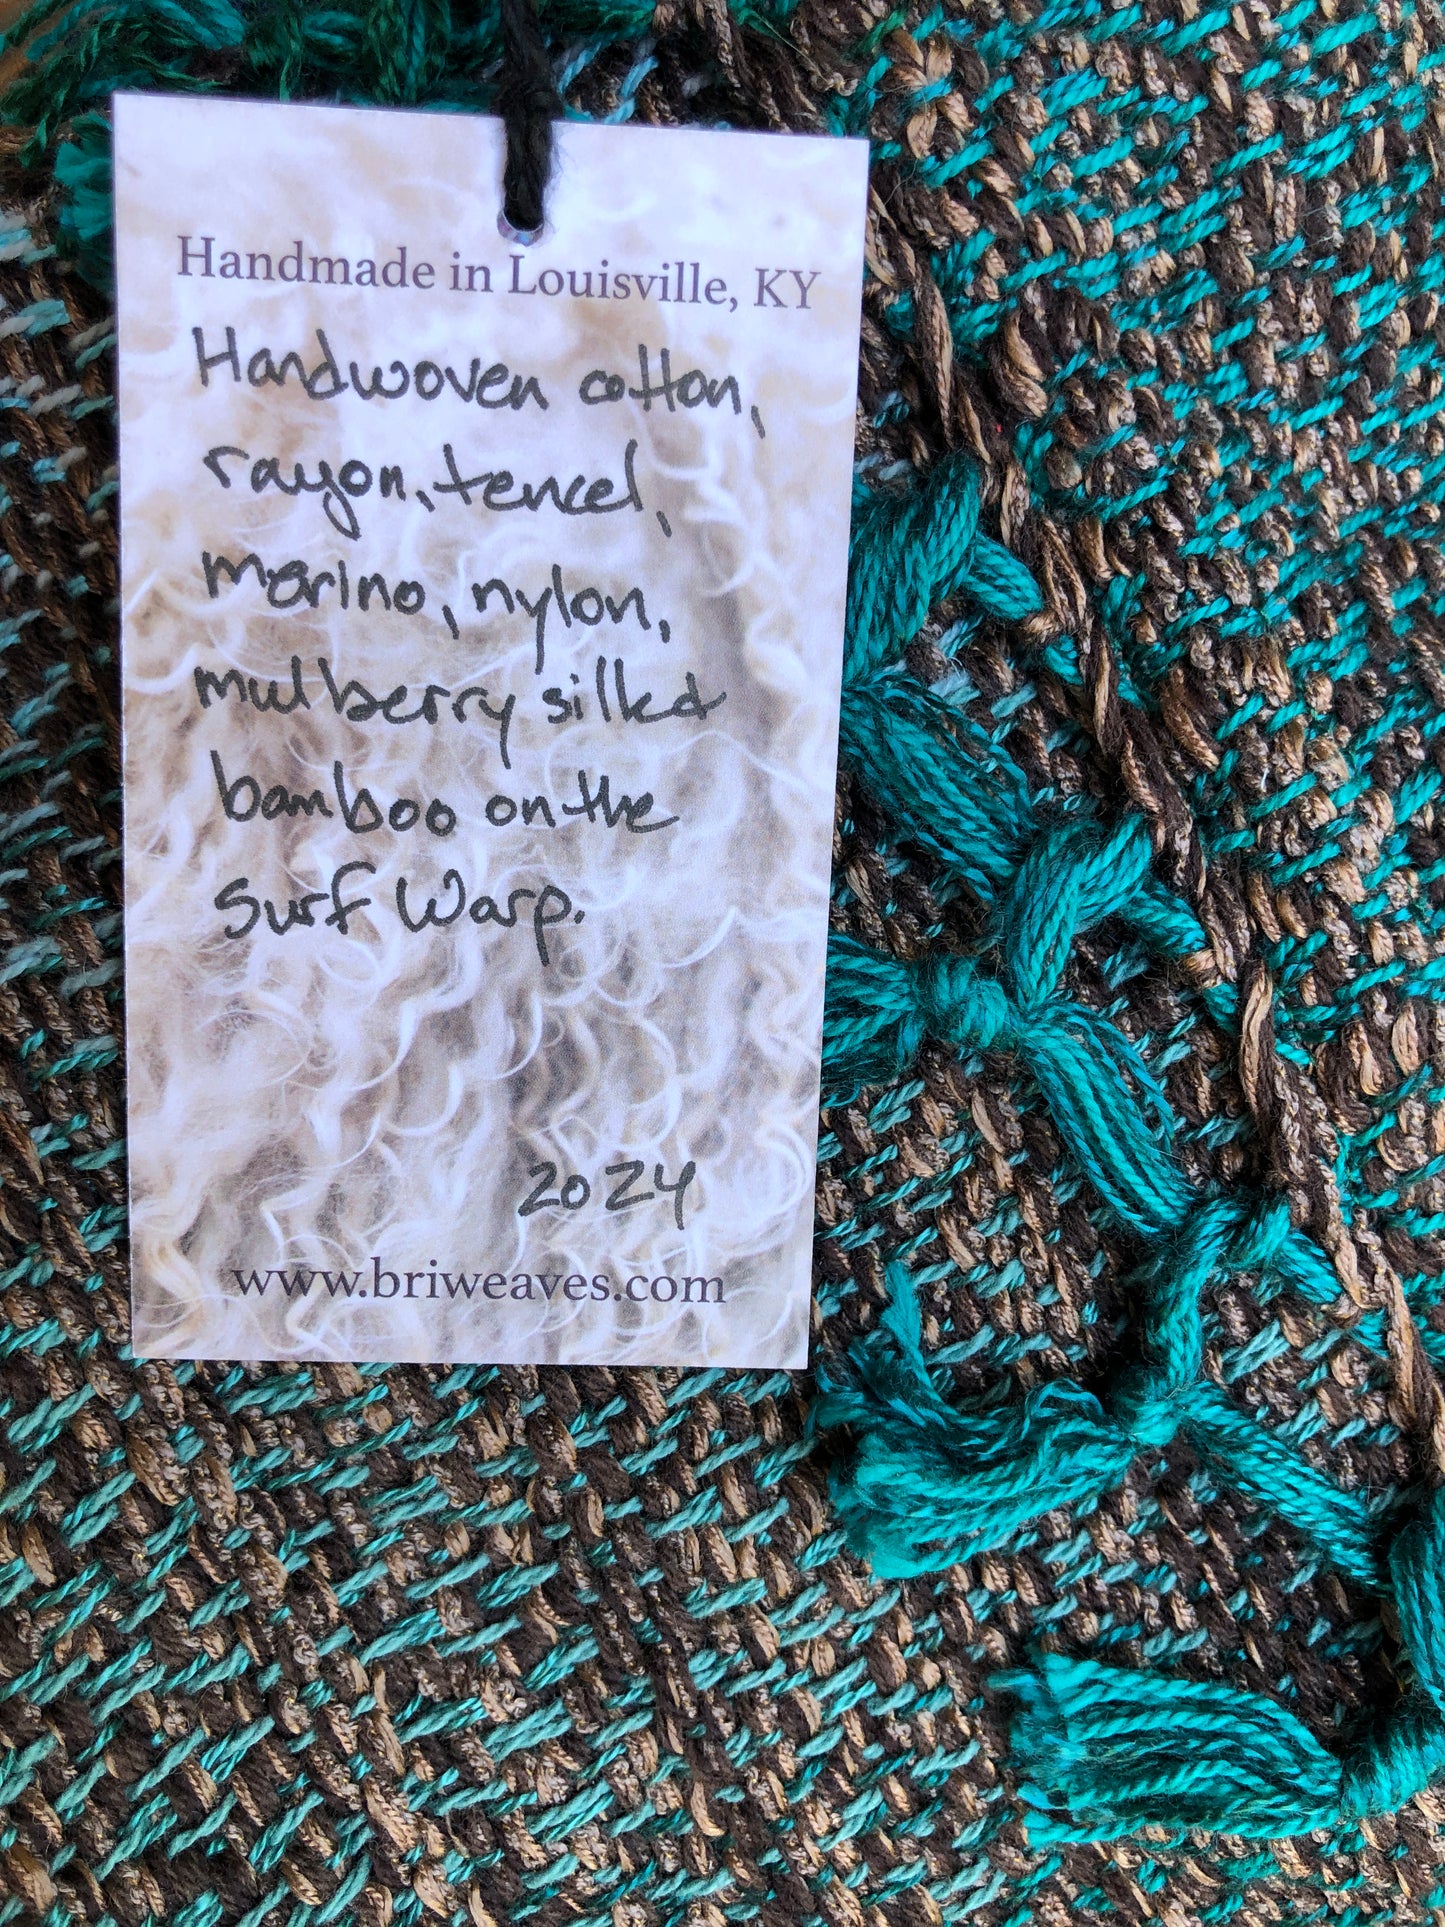 Handmade in Louisville, KY
Handwoven cotton,
rayon, tencel,
merino, nylon,
mulberry silk &
bamboo on the
Surf Warp.
2024
www.briweaves.com